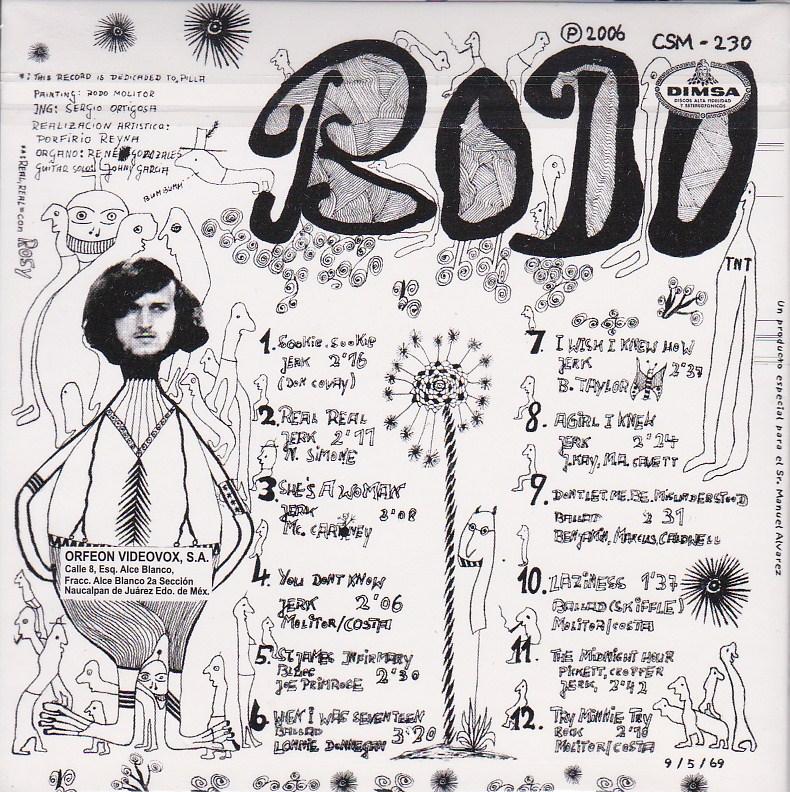 ℗ 2006 CSM - 230
DIMSA
DISCOS ALTA FIDELIDAD
Y ESTEREOFONICOS
RODO
*: THIS RECORD IS DEDICADED TO, PILLA
PAINTING: RODO MOLITOR
ING: SERGIO ORTIGOSA
REALIZACION ARTISTICA:
PORFIRIO REYNA
ORGANO: RENE GONZALES
GUITAR SOLO: JOHNY GARCIA
**: REAL, REAL = CON ROSY
BUM BUMM
TNT
1. SOOKIE. SOOKIE
JERK 2'16
(DON COVAY)
2. REAL REAL
JERK 2'11
N. SIMONE
3. SHE'S A WOMAN
JERK 3'02
MC. CARTNEY
4. YOU DONT KNOW
JERK 2'06
MOLITOR/COSTA
5. ST JAMES INFIRMARY
BLUES 2'30
JOE PRIMROSE
6. WHEN I WAS SEVENTEEN
BALLAD 3'20
LONNIE DONNEGAN
7. I WISH I KNEW HOW
JERK 2'37
B. TAYLOR
8. A GIRL I KNEW
JERK 2'24
J. KAY, M.R. CAVETT
9. DONT LET. ME. BE. MISUNDERSTOOD
BALLAD 2 31
BENJAMIN, MARCUS, CALDWELL
10. LAZINESS 1'37
BALLAD (SKIFFLE)
MOLITOR/COSTA
11. THE MIDNIGHT HOUR
PICKETT, CROPPER
JERK, 2'42
12. TRY MINNIE TRY
ROCK 2'10
MOLITOR/COSTA
9/5/69
ORFEON VIDEOVOX, S.A.
Calle 8, Esq. Alce Blanco,
Fracc. Alce Blanco 2a Sección
Naucalpan de Juárez Edo. de Méx.
Un producto especial para el Sr. Manuel Alvarez